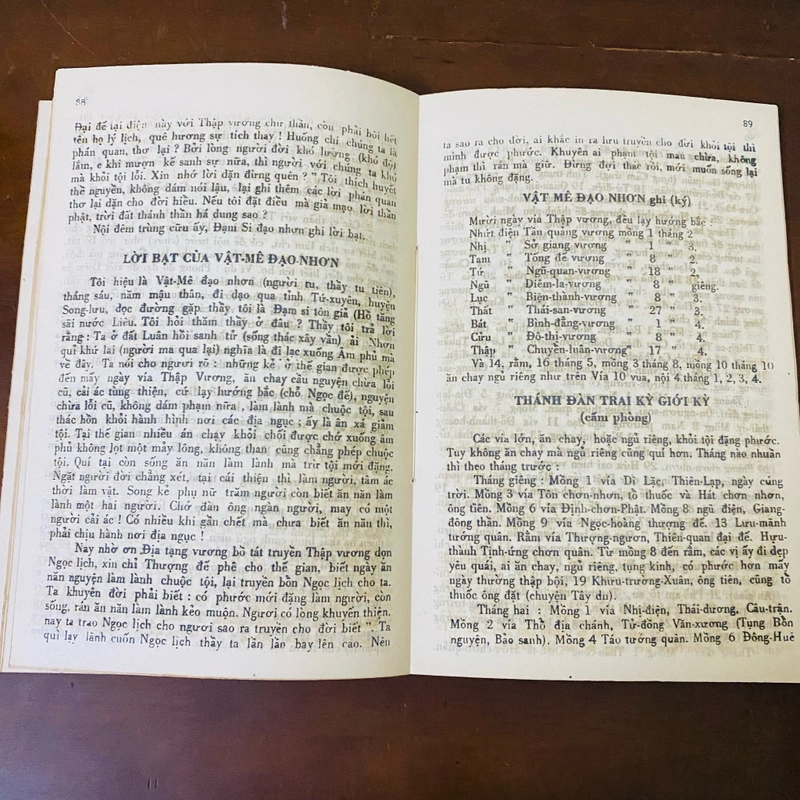 88
Đại đế tại điện này với Thập vương chư thần, còn phải bôi hết
tên họ lý lịch, quê hương sự tích thay ! Huống chi chúng ta là
phán quan, thơ lại ? Bởi lòng người đời khó lượng (khó độ)
lắm, e khi mượn kê sanh sự nữa, thì người với chúng ta khó
mà khỏi tội lỗi. Xin nhớ lời dặn đừng quên ? " Tôi thích huyết
thề nguyền, không dám nói lậu, lại ghi thêm các lời phán quan
thơ lại dặn cho đời hiểu. Nếu tôi đặt điều mà giả mạo lời thần
phật, trời đất thánh thần há dung sao ?
Nội đêm trùng cửu ấy, Đạm Si đạo nhơn ghi lời bạt.
LỜI BẠT CỦA VẬT-MÊ ĐẠO-NHƠN
Tôi hiệu là Vật-Mê đạo nhơn (người tu, thầy tu tiên),
tháng sáu, năm mậu thân, đi dạo qua tỉnh Tứ-xuyên, huyện
Song-lưu, dọc đường gặp thầy tôi là Đạm si tôn giả (Hồ tăng
sãi nước Liêu. Tôi hỏi thăm thầy ở đâu ? Thầy tôi trả lời
rằng : Ta ở đất Luân hồi sanh tử (sống thác xây vần) ải Nhơn
quỉ khứ lai (người ma qua lại) nghĩa là đi lạc xuống Âm phủ mà
về đây. Ta nói cho ngươi rõ : những kẻ ở thế gian được phép
đến mấy ngày vía Thập Vương, ăn chay cầu nguyện chừa lỗi
cũ, cải ác tùng thiện, cứ lạy hướng bắc (chỗ Ngọc đế), nguyện
chừa lỗi cũ, không dám phạm nữa, làm lành mà chuộc tội, sau
thác hồn khỏi hành hình nơi các địa ngục ; ấy là ân xá giảm
tội. Tại thế gian nhiều án chạy khỏi chối được chớ xuống âm
phủ không lọt một mảy lông, không than cũng chẳng phép chuộc
tội. Quí tại còn sống ăn năn làm lành mà trừ tội mới đặng.
Ngặt người đời chẳng xét, tại cải thiện thì làm người, tâm ác
thời làm vật. Song kẻ phụ nữ trăm người còn biết ăn năn làm
lành một hai người. Chớ đàn ông ngàn người, may có một
người cải ác ! Có nhiều khi gần chết mà chưa biết ăn năn thì,
phải chịu hành nơi địa ngục !
Nay nhờ ơn Địa tạng vương bồ tát truyền Thập vương dọn
Ngọc lịch, xin chỉ Thượng đế phê cho thế gian, biết ngày ăn
năn nguyện làm lành chuộc tội, lại truyền bổn Ngọc lịch cho ta.
Ta khuyên đời phải biết : có phước mới đặng làm người, còn
sống, rán ăn năn làm lành kẻo muộn. Ngươi có lòng khuyến thiện.
nay ta trao Ngọc lịch cho ngươi sao ra truyền cho đời biết ". Ta
quì lạy lãnh cuốn Ngọc lịch thầy ta lần lần bay lên cao. Nên
89
ta sao ra cho đời, ai khắc in ra lưu truyền cho đời khỏi tội thì
mình được phước. Khuyên ai phạm tội mau chừa, không
phạm thì rán mà giữ. Đừng đợi thác rồi, mới muốn sống lại
mà tu không đặng.
VẬT MÊ ĐẠO NHƠN ghi (ký)
Mười ngày vía Thập vương, đều lạy hướng bắc :
Nhứt điện Tần quảng vương mồng 1 tháng 2
Nhị " Sở giang vương " 1 " 3.
Tam " Tống đế vương " 8 " 2.
Tứ " Ngũ-quan-vương " 18 " 2.
Ngũ " Diêm-la-vương " 8 " giêng.
Lục " Biện-thành-vương " 8 " 3.
Thất " Thái-san-vương " 27 " 3.
Bát " Bình-đẳng-vương " 1 " 4.
Cửu " Đô-thị-vương " 8 " 4.
Thập " Chuyển-luân-vương " 17 " 4.
Và 14, rằm, 16 tháng 5, mồng 3 tháng 8, mồng 10 tháng 10
ăn chay ngủ riêng như trên Vía 10 vua, nội 4 tháng 1, 2, 3, 4.
THÁNH ĐÀN TRAI KỲ GIỚI KỲ
(cấm phòng)
Các vía lớn, ăn chay, hoặc ngủ riêng, khỏi tội đặng phước.
Tuy không ăn chay mà ngủ riêng cũng quí hơn. Tháng nào nhuần
thì theo tháng trước :
Tháng giêng : Mồng 1 vía Di Lặc, Thiên-Lạp, ngày cúng
trời. Mồng 3 vía Tôn chơn-nhơn, tổ thuốc và Hát chơn nhơn,
ông tiên. Mồng 6 vía Định-chơn-Phật. Mồng 8 ngũ điện, Giang-
đông thần. Mồng 9 vía Ngọc-hoàng thượng đế. 13 Lưu-mãnh
tướng quân. Rằm vía Thượng-ngươn, Thiên-quan đại đế. Hựu-
thành Tịnh-ứng chơn quân. Từ mồng 8 đến rằm, các vị ấy đi dẹp
yêu quái, ai ăn chay, ngủ riêng, tụng kinh, có phước hơn mấy
ngày thường thập bội, 19 Khưu-trương-Xuân, ông tiên, cũng tổ
thuốc ông đặt (chuyện Tây du).
Tháng hai : Mồng 1 vía Nhị-điện, Thái-dương, Câu-trận.
Mồng 2 vía Thổ địa chánh, Tử-đồng Văn-xương (Tụng Bổn
nguyện, Bảo sanh). Mồng 4 Táo tướng quân. Mồng 6 Đông-Huê